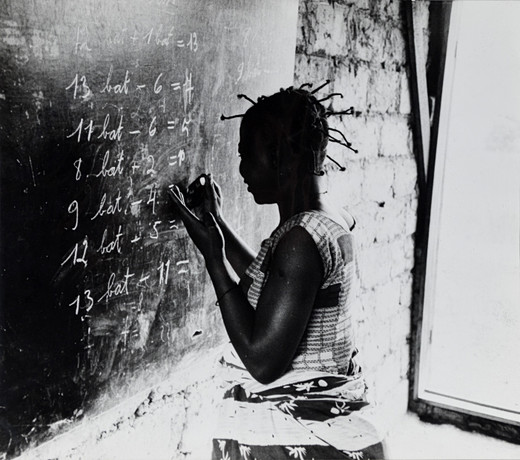 bat = 13
13 bat - 6 =
11 bat - 6 = 5
8 bat + 2 =
9 bat - 4
12 bat + 5 =
13 bat - 11 =